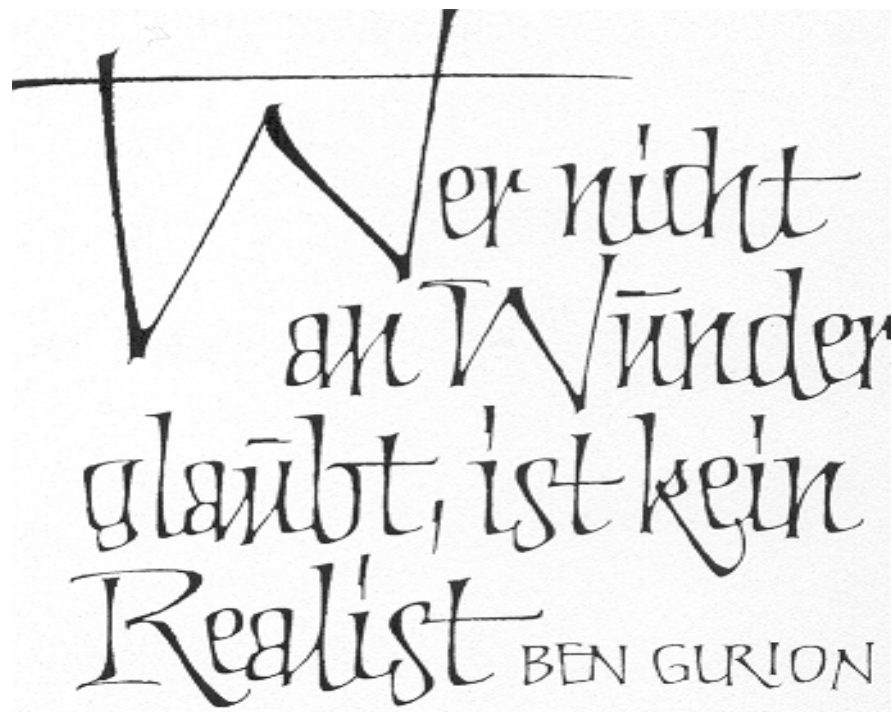 Wer nicht
an Wunder
glaubt, ist kein
Realist BEN GURION